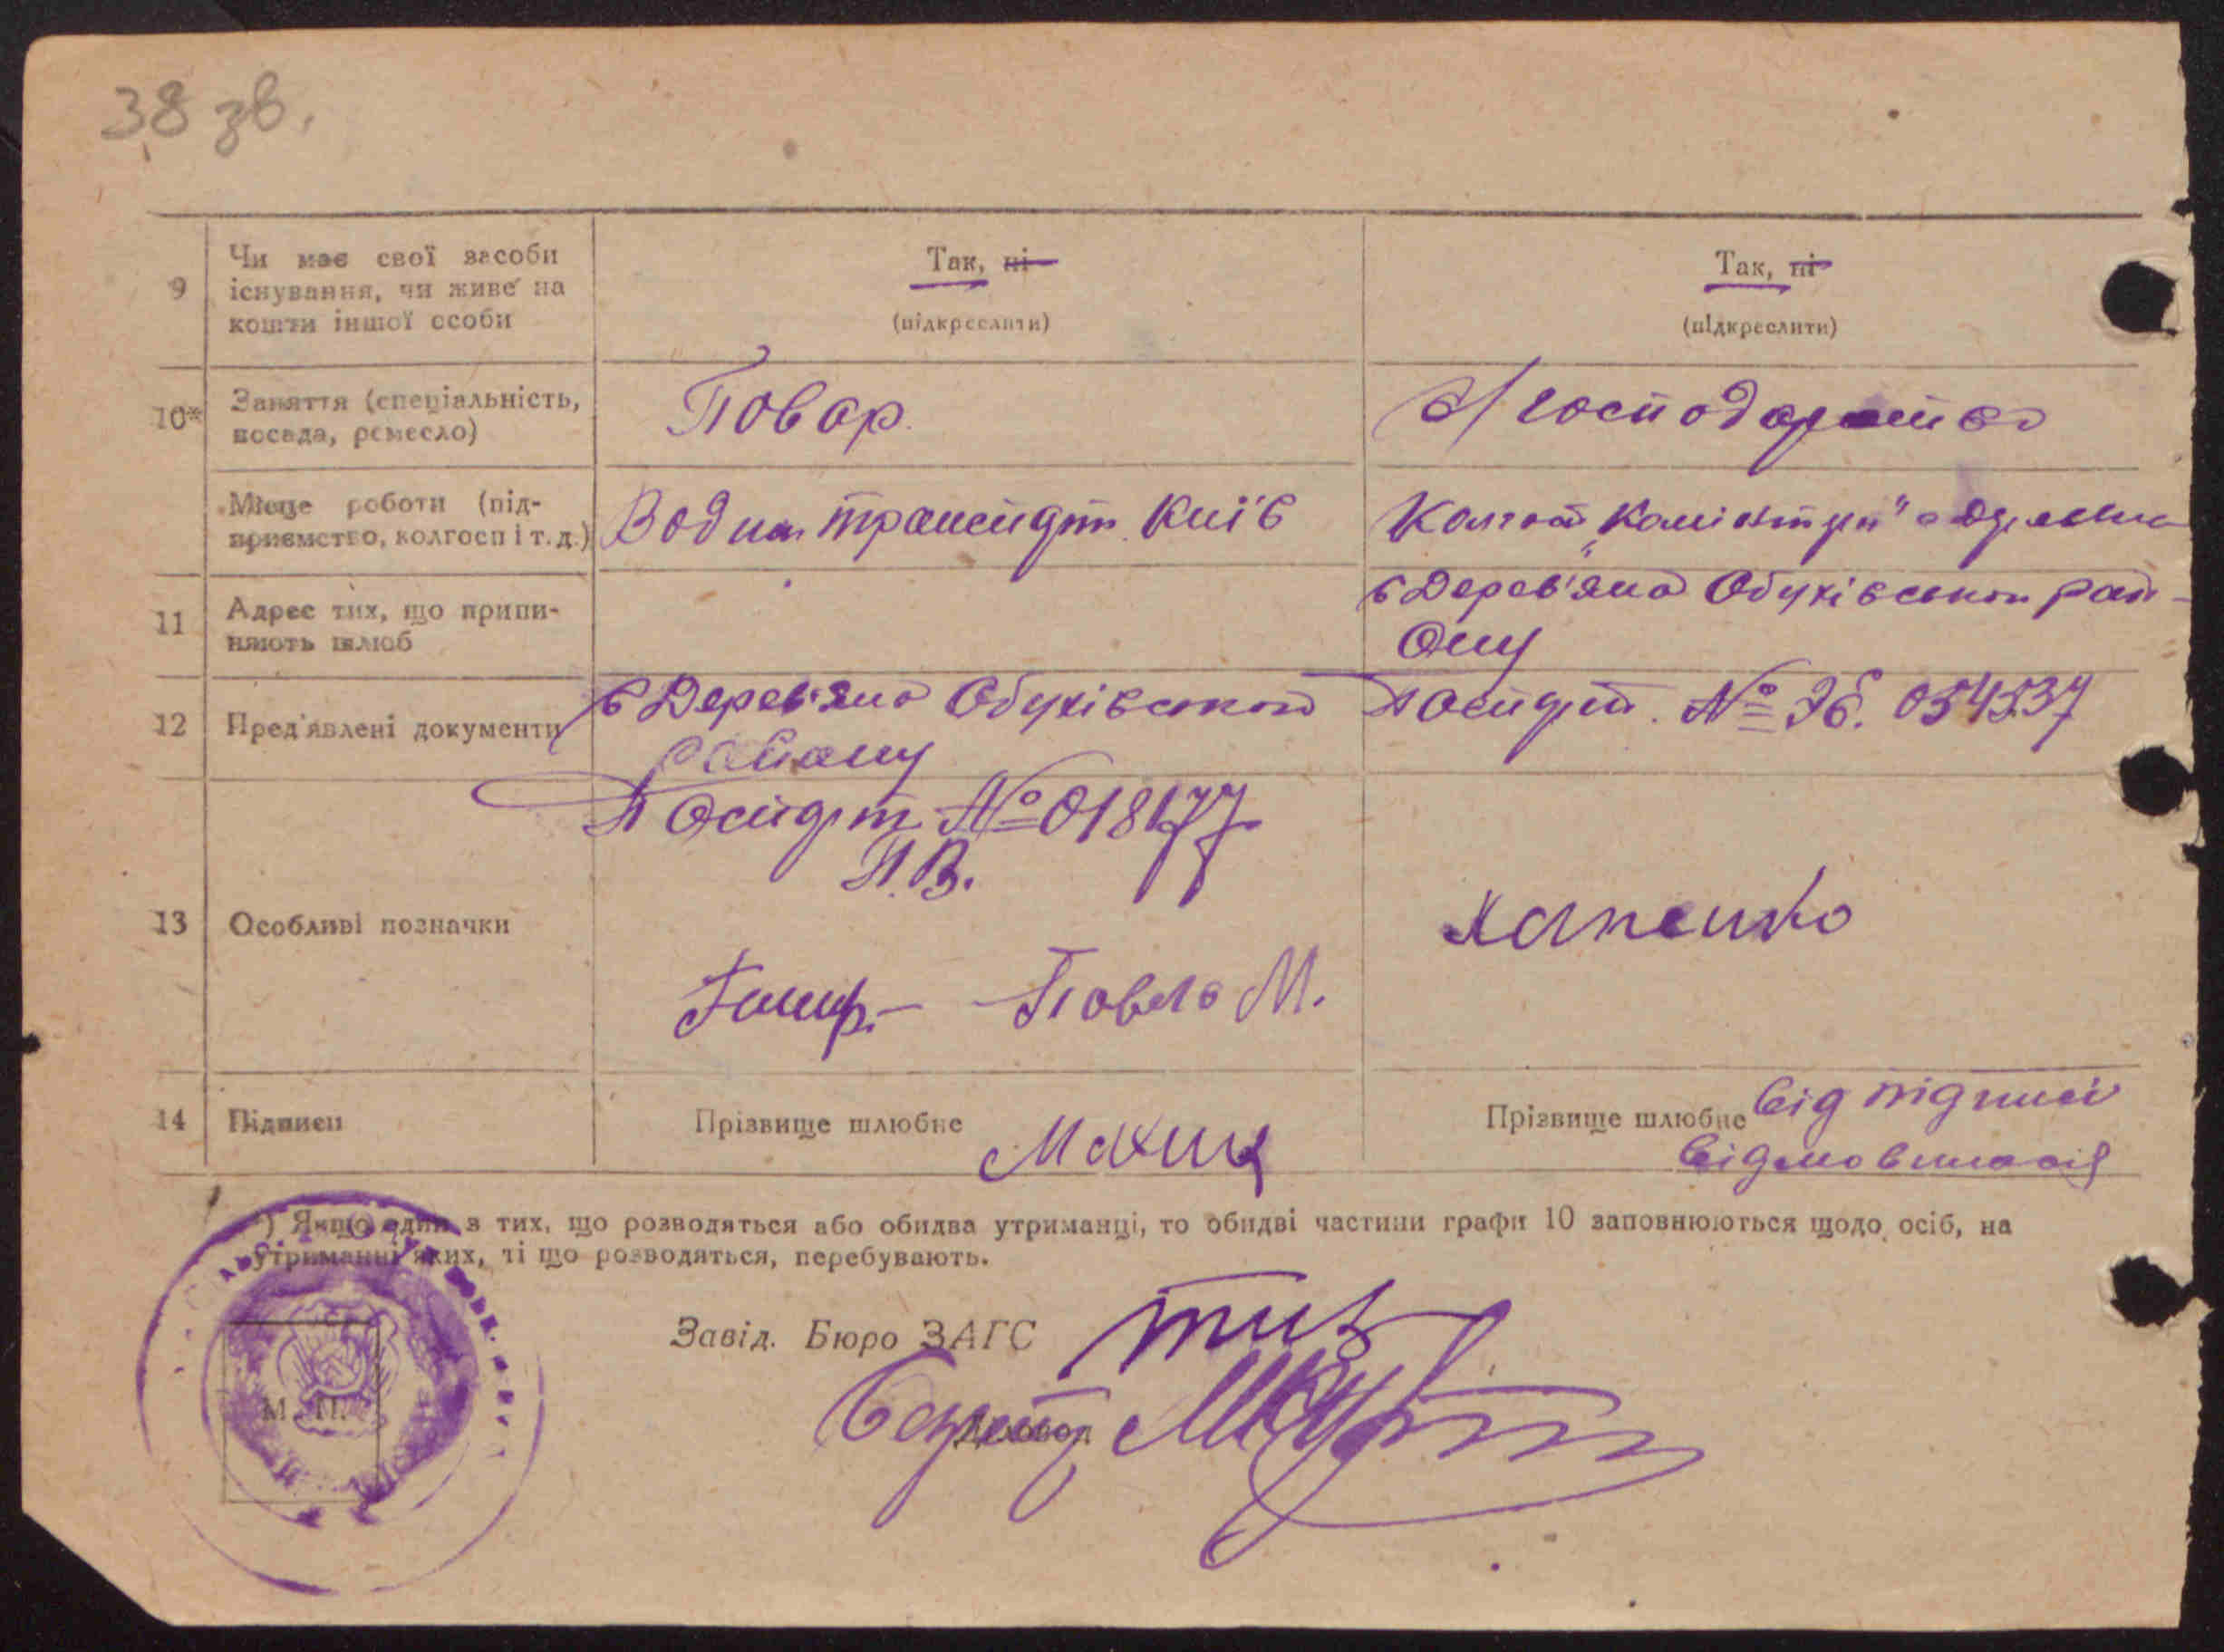 38 зв.
9
Чи має свої засоби
існування, чи живе на
кошти іншої особи
Так, ні
(підкреслити)
Так, ні
(підкреслити)
10*
Заняття (спеціальність,
посада, ремесло)
Повар.
С/господарство
Місце роботи (під-
приємство, колгосп і т. д.)
Водни транспорт. Київ
Колгосп „Комінтерн"
11
Адрес тих, що припи-
няють шлюб
с Дерев'яна Обухівського рай-
ону
12
Пред'явлені документи
с Дерев'яна Обухівського
району
Паспорт. № 054537
Поспорт № 018177
П.В.
13
Особливі позначки
Павло М.
14
Підписи
Прізвище шлюбне
Прізвище шлюбне
від підписи
відмовилась
*) Якщо один з тих, що розводяться або обидва утриманці, то обидві частини графи 10 заповнюються щодо осіб, на
утриманні яких, ті що розводяться, перебувають.
Завід. Бюро ЗАГС
Діловод
М. П.